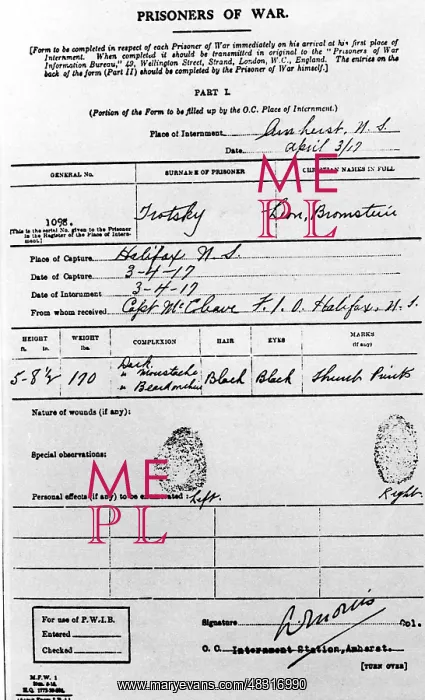 PRISONERS OF WAR.
[Form to be completed in respect of each Prisoner of War immediately on his arrival at his first place of
Internment. When completed it should be transmitted in original to the "Prisoners of War
Information Bureau," 49, Wellington Street, Strand, London, W.C., England. The entries on the
back of the form (Part II) should be completed by the Prisoner of War himself.]
PART I.
(Portion of the Form to be filled up by the O.C. Place of Internment.)
Place of Internment Amherst, N. S.
Date April 3/17
GENERAL No. SURNAME OF PRISONER CHRISTIAN NAMES IN FULL
1098. Trotsky Leon, Bromstein
[This is the serial No. given to the Prisoner
in the Register of the Place of Intern-
ment.]
ME
PL
Place of Capture Halifax N. S.
Date of Capture 3-4-17
Date of Internment 3-4-17
From whom received Capt McCleave F. I. O. Halifax, N. S.
HEIGHT WEIGHT COMPLEXION HAIR EYES MARKS
ft. in. lbs. (if any)
5-8½ 170 Dark Black Black Thumb Prints
" Moustache
"
Nature of wounds (if any):
Special observations:
ME
PL
Personal effects (if any) to be enumerated: Left. Right.
For use of P.W.I.B.
Entered
Checked
Signature Col.
O. C. Internment Station, Amherst.
[TURN OVER]
M.F.W. 1
www.maryevans.com/48916990